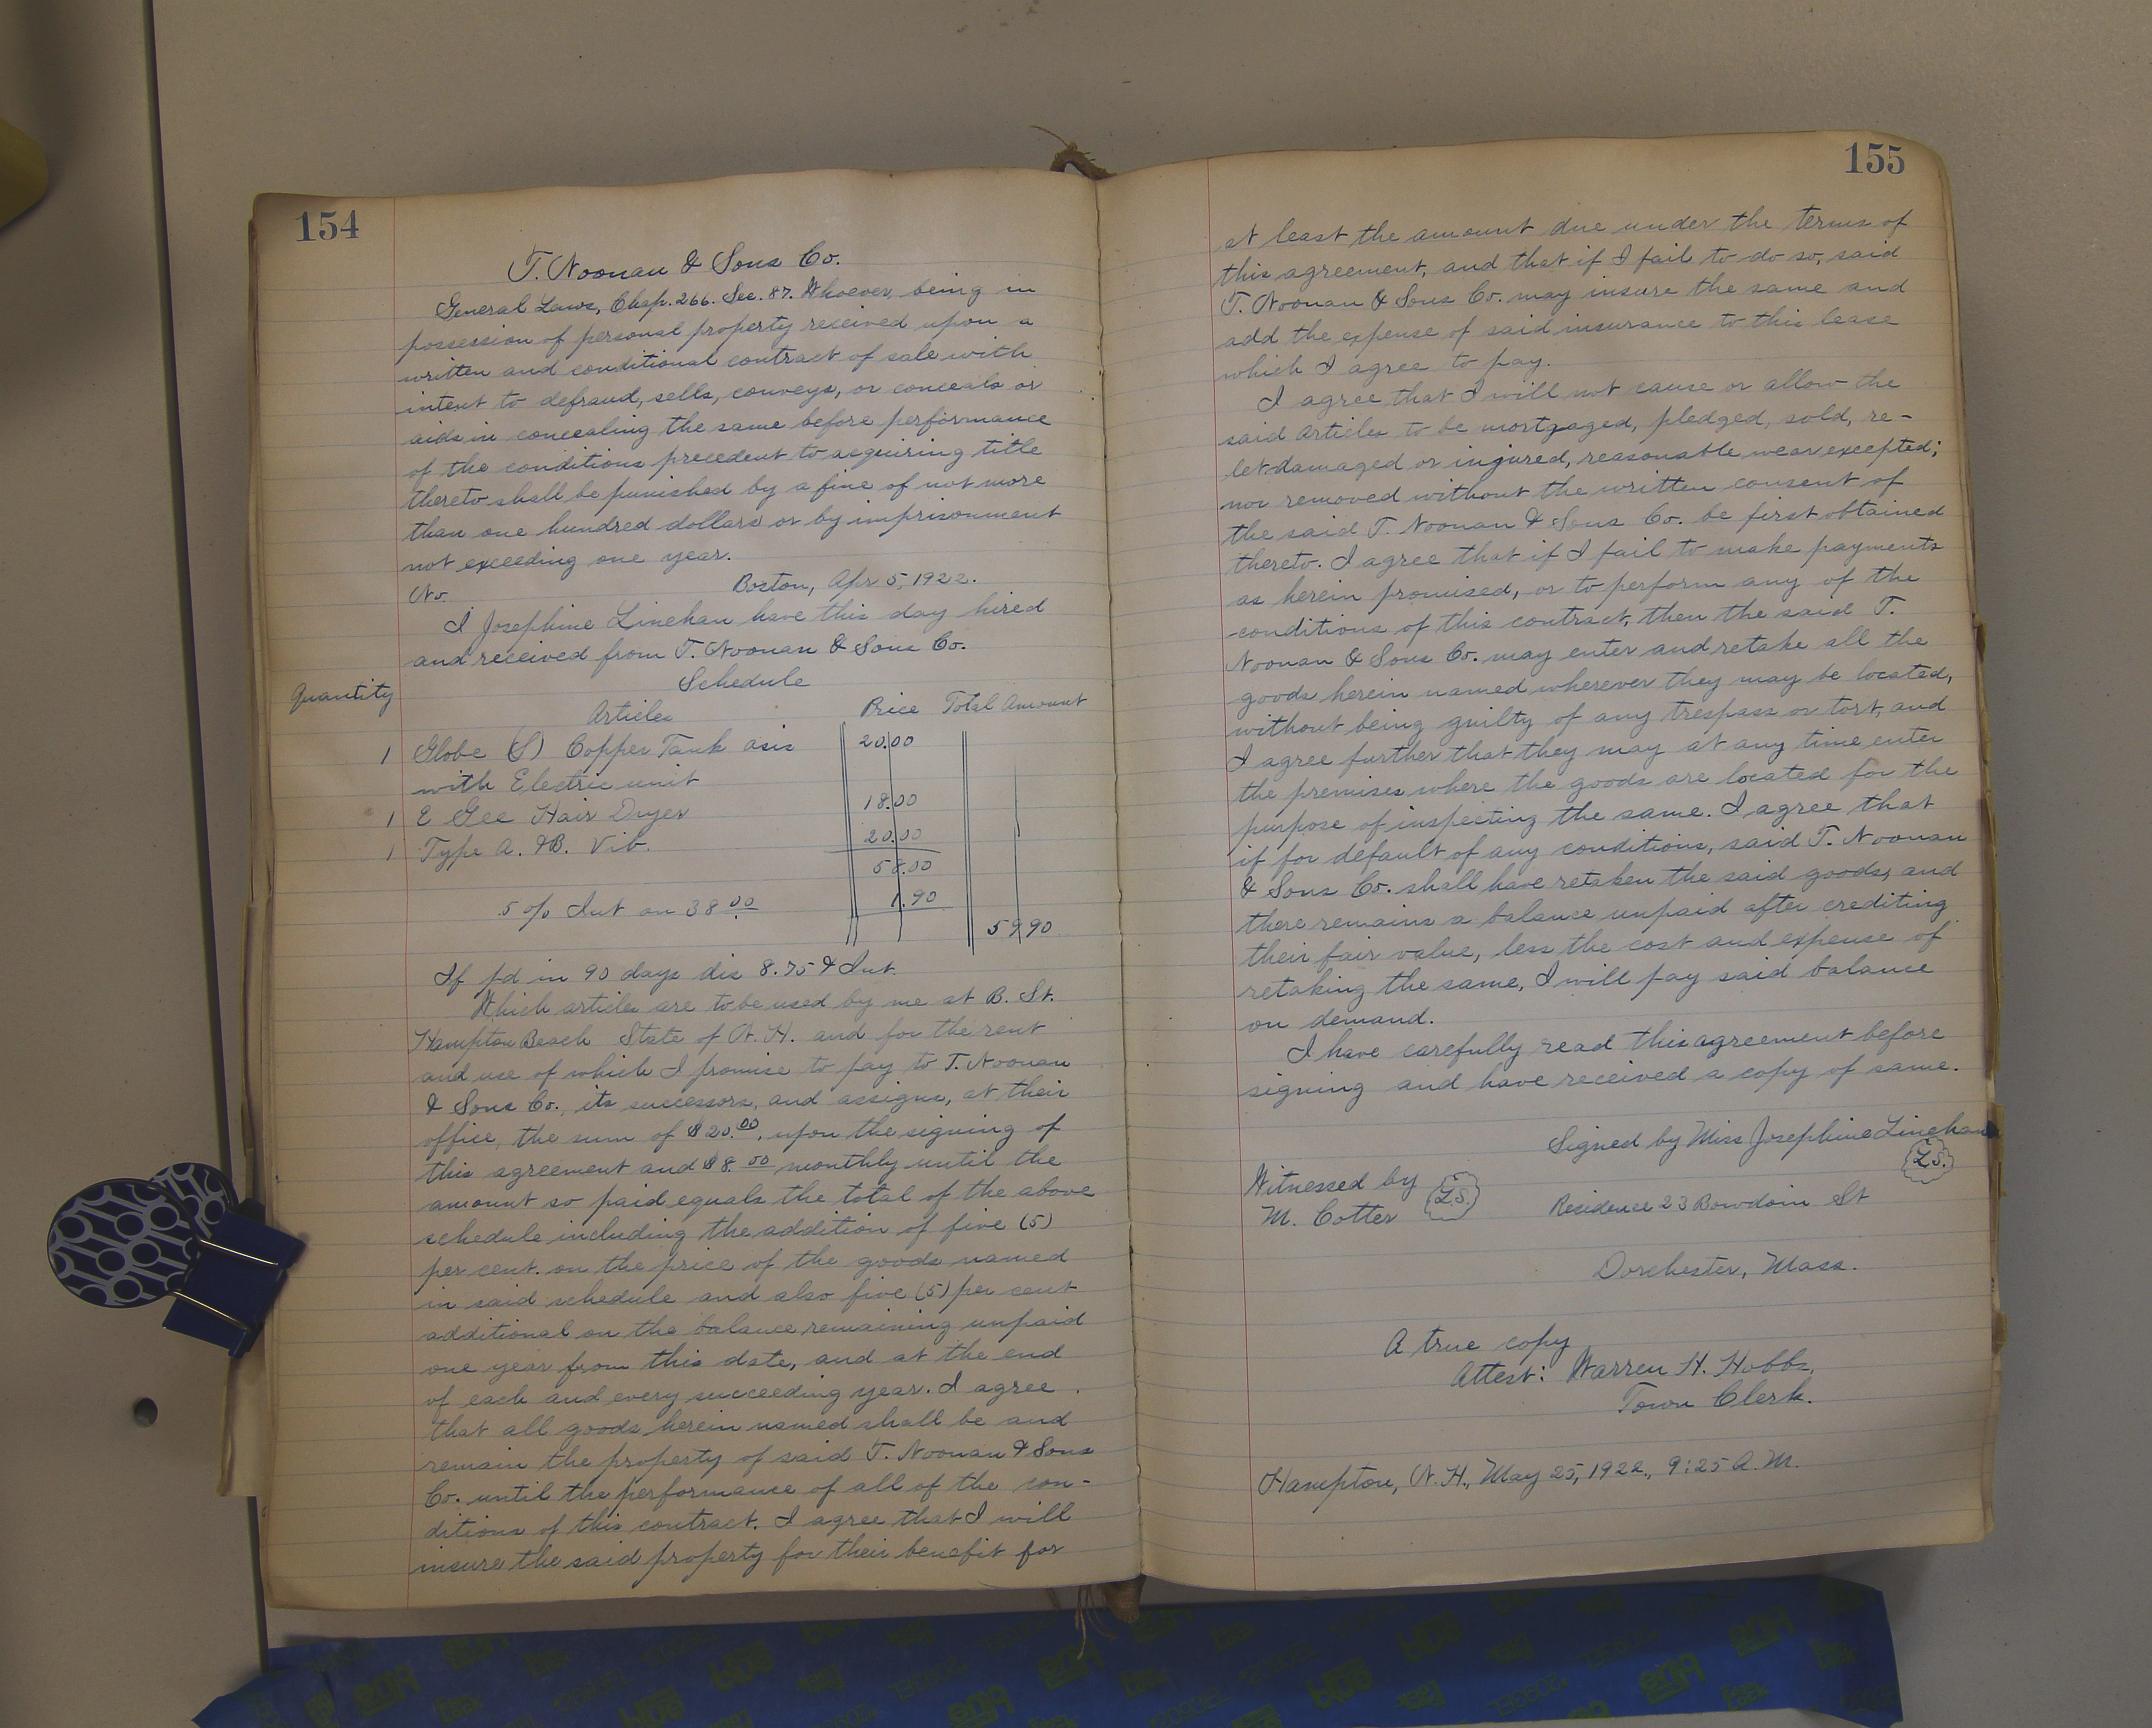 154
T. Noonan & Sons Co.
General Laws, Chap. 266. Sec. 87. Whoever, being in
possession of personal property received upon a
written and conditional contract of sale with
intent to defraud, sells, conveys, or conceals or
aids in concealing the same before performance
of the conditions precedent to acquiring title
thereto shall be punished by a fine of not more
than one hundred dollars or by imprisonment
not exceeding one year.
No. Boston, Apr 5, 1922.
I Josephine Linehan have this day hired
and received from T. Noonan & Sons Co.
Schedule
Quantity Articles Price Total Amount
1 Globe (S) Copper Tank asis 20.00
with Electric unit
1 E Gee Hair Dryer 18.00
1 Type A. &B. Vib. 20.00
58.00
5 o/o Int on 38 00 1.90
59 90
If pd in 90 days dis 8.75 & Int.
Which articles are to be used by me at B. St.
Hampton Beach State of N. H. and for the rent
and use of which I promise to pay to T. Noonan
& Sons Co., its successors, and assigns, at their
office, the sum of $20.00, upon the signing of
this agreement and $8.00 monthly until the
amount so paid equals the total of the above
schedule including the addition of five (5)
per cent. on the price of the goods named
in said schedule and also five (5) per cent
additional on the balance remaining unpaid
one year from this date, and at the end
of each and every succeeding year. I agree
that all goods herein named shall be and
remain the property of said T. Noonan & Sons
Co. until the performance of all of the con-
ditions of this contract. I agree that I will
insure the said property for their benefit for
155
at least the amount due under the terms of
this agreement, and that if I fail to do so, said
T. Noonan & Sons Co. may insure the same and
add the expense of said insurance to this lease
which I agree to pay.
I agree that I will not cause or allow the
said articles to be mortgaged, pledged, sold, re-
let damaged or injured, reasonable wear excepted;
nor removed without the written consent of
the said T. Noonan & Sons Co. be first obtained
thereto. I agree that if I fail to make payments
as herein promised, or to perform any of the
conditions of this contract, then the said T.
Noonan & Sons Co. may enter and retake all the
goods herein named wherever they may be located,
without being guilty of any trespass or tort, and
I agree further that they may at any time enter
the premises where the goods are located for the
purpose of inspecting the same. I agree that
if for default of any conditions, said T. Noonan
& Sons Co. shall have retaken the said goods, and
there remains a balance unpaid after crediting
their fair value, less the cost and expense of
retaking the same, I will pay said balance
on demand.
I have carefully read this agreement before
signing and have received a copy of same.
Signed by Miss Josephine Linehan
L.S.
Witnessed by L.S.
M. Cotter Residence 23 Bowdoin St
Dorchester, Mass.
A true copy
Attest: Warren H. Hobbs,
Town Clerk.
Hampton, N. H., May 25, 1922., 9:25 A. M.